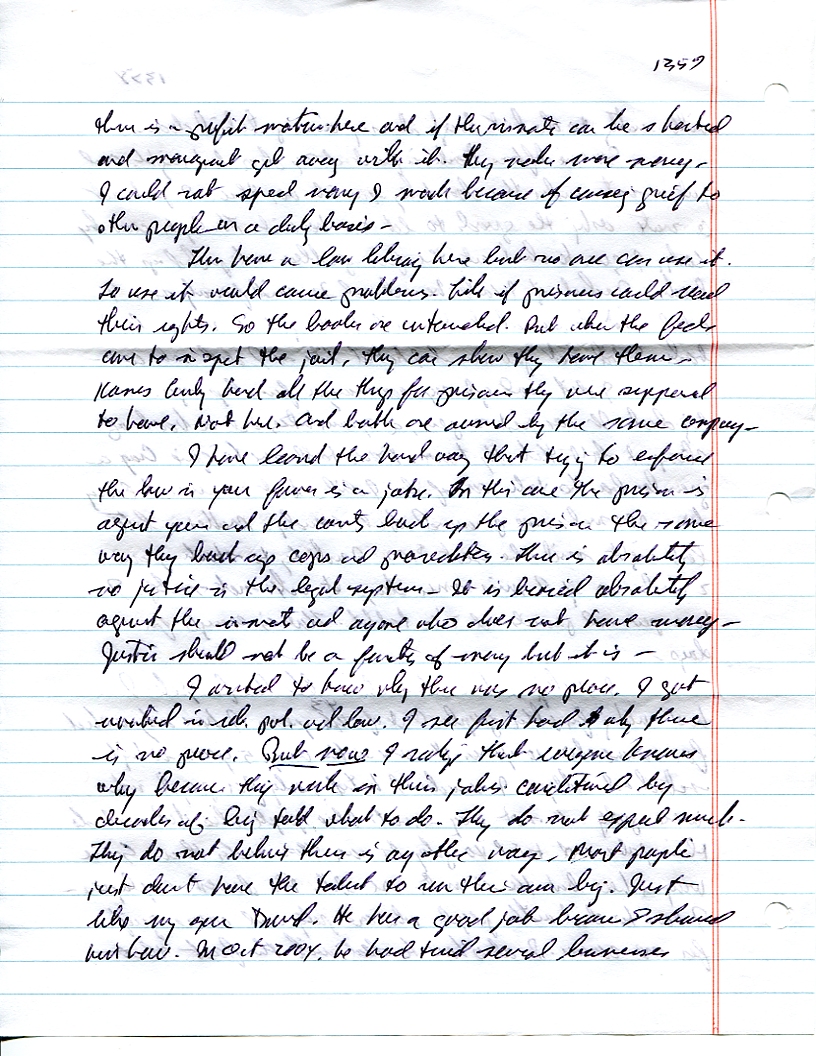 1359
there is a profit motive here and if the inmate can be shorted
and management get away with it. They make more money -
I could not spend money I made because of causing grief to
other people on a daily basis -
They have a law library here but no one can use it.
To use it would cause problems. Like if prisoners could read
their rights. So the books are untouched. But when the feds
come to inspect the jail, they can show they have them -
had all the things for prisoners they were supposed
to have. Not here. And both are owned by the same company -
I have learned the hard way that trying to enforce
the law in your favor is a joke. In this case the prison is
against you and the courts back up the prison the same
way they back up cops and prosecutors. There is absolutely
no justice in the legal system - It is biased absolutely
against the inmate and anyone who does not have money -
Justice should not be a of money but it is -
I wanted to know why there was no peace. I got
involved in rel. pol. and law. I see first hand why there
is no peace. But now I realize that everyone knows
why because they work in their jobs conditioned by
decades of being told what to do. They do not expect much.
They do not believe there is any other way. Most people
just don't have the talent to run their own biz. Just
like my son David. He has a good job because I showed
him how. In Oct 2004, he had tried several businesses